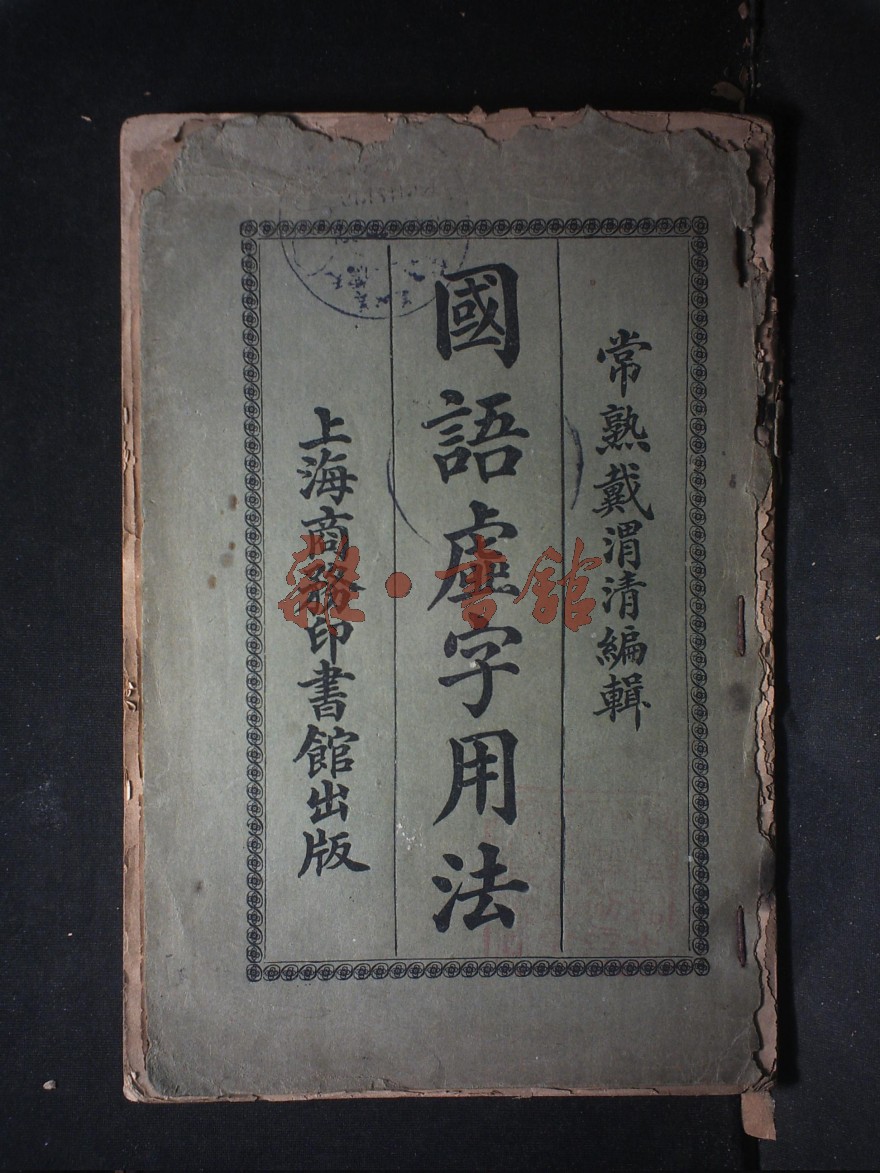 常熟戴渭清編輯
國語虛字用法
上海商務印書館出版
書館